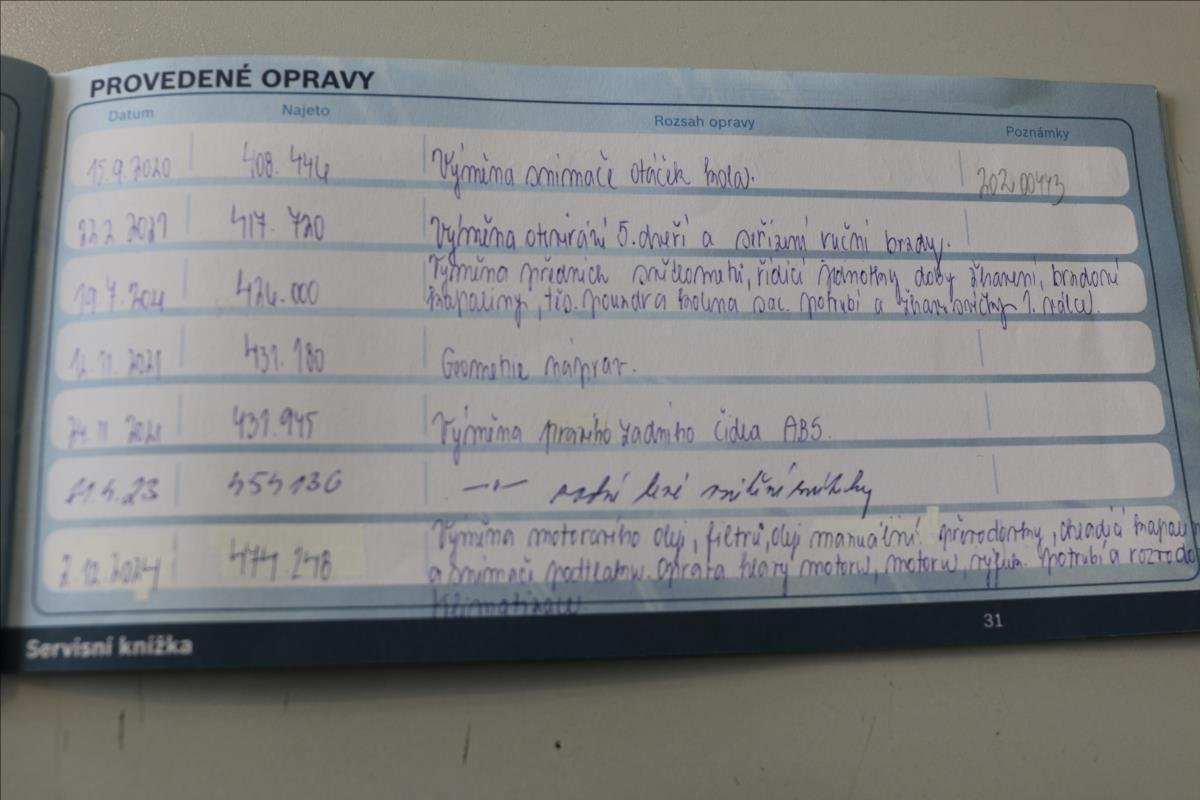 PROVEDENÉ OPRAVY
Datum Najeto Rozsah opravy Poznámky
15.9.2020 408.446 Výměna snímače otáček kola. 202000443
22.2.2021 417.720 Výměna otvírání 5.dveří a seřízení ruční brzdy.
19.7.2021 426.000 Výměna předních světlometů, řídící jednotky doby žhavení, brzdové
kapaliny, tes. pouzdra sac. potrubí a žhav. svíčky 1. válce.
12.11.2021 431.180 Geometrie náprav.
24.11.2021 431.945 Výměna pravého zadního čidla ABS.
454136
2.12.2024 474.248 Výměna motorového oleje, filtrů, oleje manuální převodovky, chladící kapaliny
a snímače podtlaku. Oprava hlavy motoru, motoru, výfuk. potrubí a rozvodů
klimatizace.
Servisní knížka 31